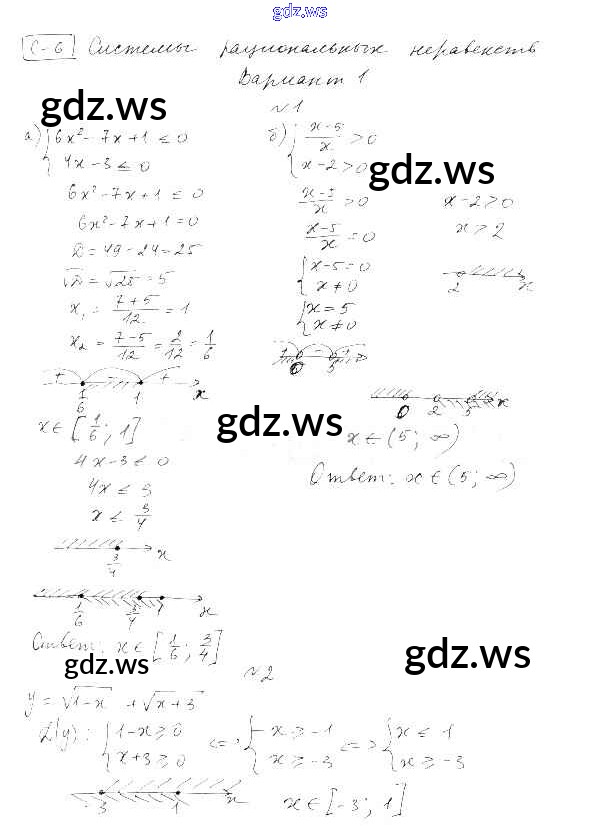 gdz.ws
С-6 Системы рациональных неравенств
Вариант 1
№1
а) { 6x² - 7x + 1 ≤ 0
4x - 3 ≤ 0
6x² - 7x + 1 ≤ 0
6x² - 7x + 1 = 0
D = 49 - 24 = 25
√D = √25 = 5
x₁ = (7+5)/12 = 1
x₂ = (7-5)/12 = 2/12 = 1/6
+ - +
1/6 1 x
x ∈ [1/6; 1]
4x - 3 ≤ 0
4x ≤ 3
x ≤ 3/4
3/4 x
1/6 3/4 1 x
Ответ: x ∈ [1/6; 3/4]
б) { (x-5)/x > 0
x - 2 > 0
(x-5)/x > 0
(x-5)/x = 0
{ x - 5 = 0
x ≠ 0
{ x = 5
x ≠ 0
+ - +
0 5
x - 2 > 0
x > 2
2 x
0 2 5 x
x ∈ (5; ∞)
Ответ: x ∈ (5; ∞)
gdz.ws
gdz.ws
gdz.ws
gdz.ws
gdz.ws
№2
y = √(1-x) + √(x+3)
D(y): { 1-x ≥ 0 <=> { -x ≥ -1 <=> { x ≤ 1
x+3 ≥ 0 x ≥ -3 x ≥ -3
-3 1 x
x ∈ [-3; 1]